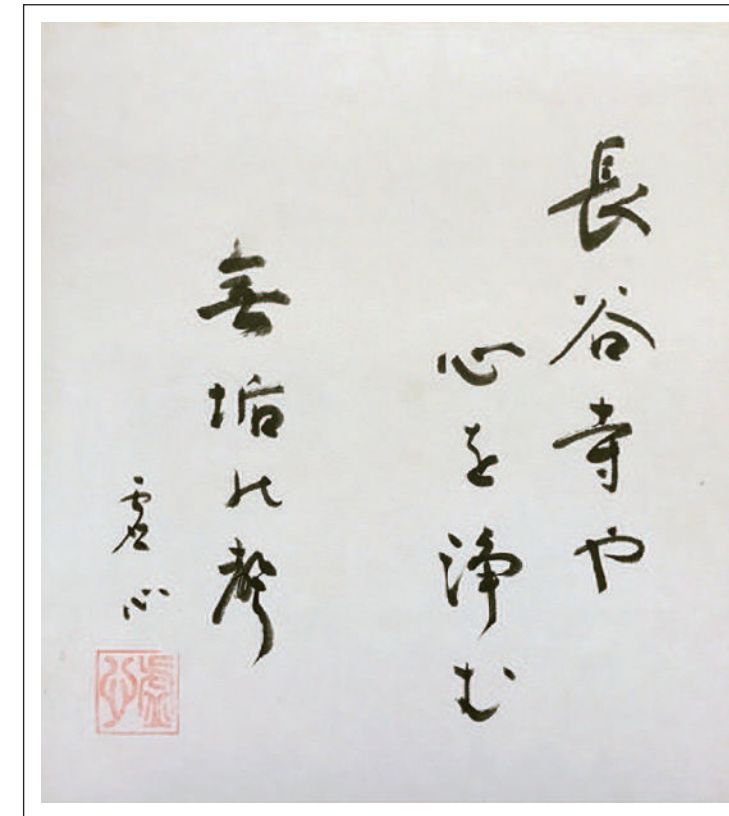 長谷寺や
心を浄む
無垢の聲
虚心
虚心